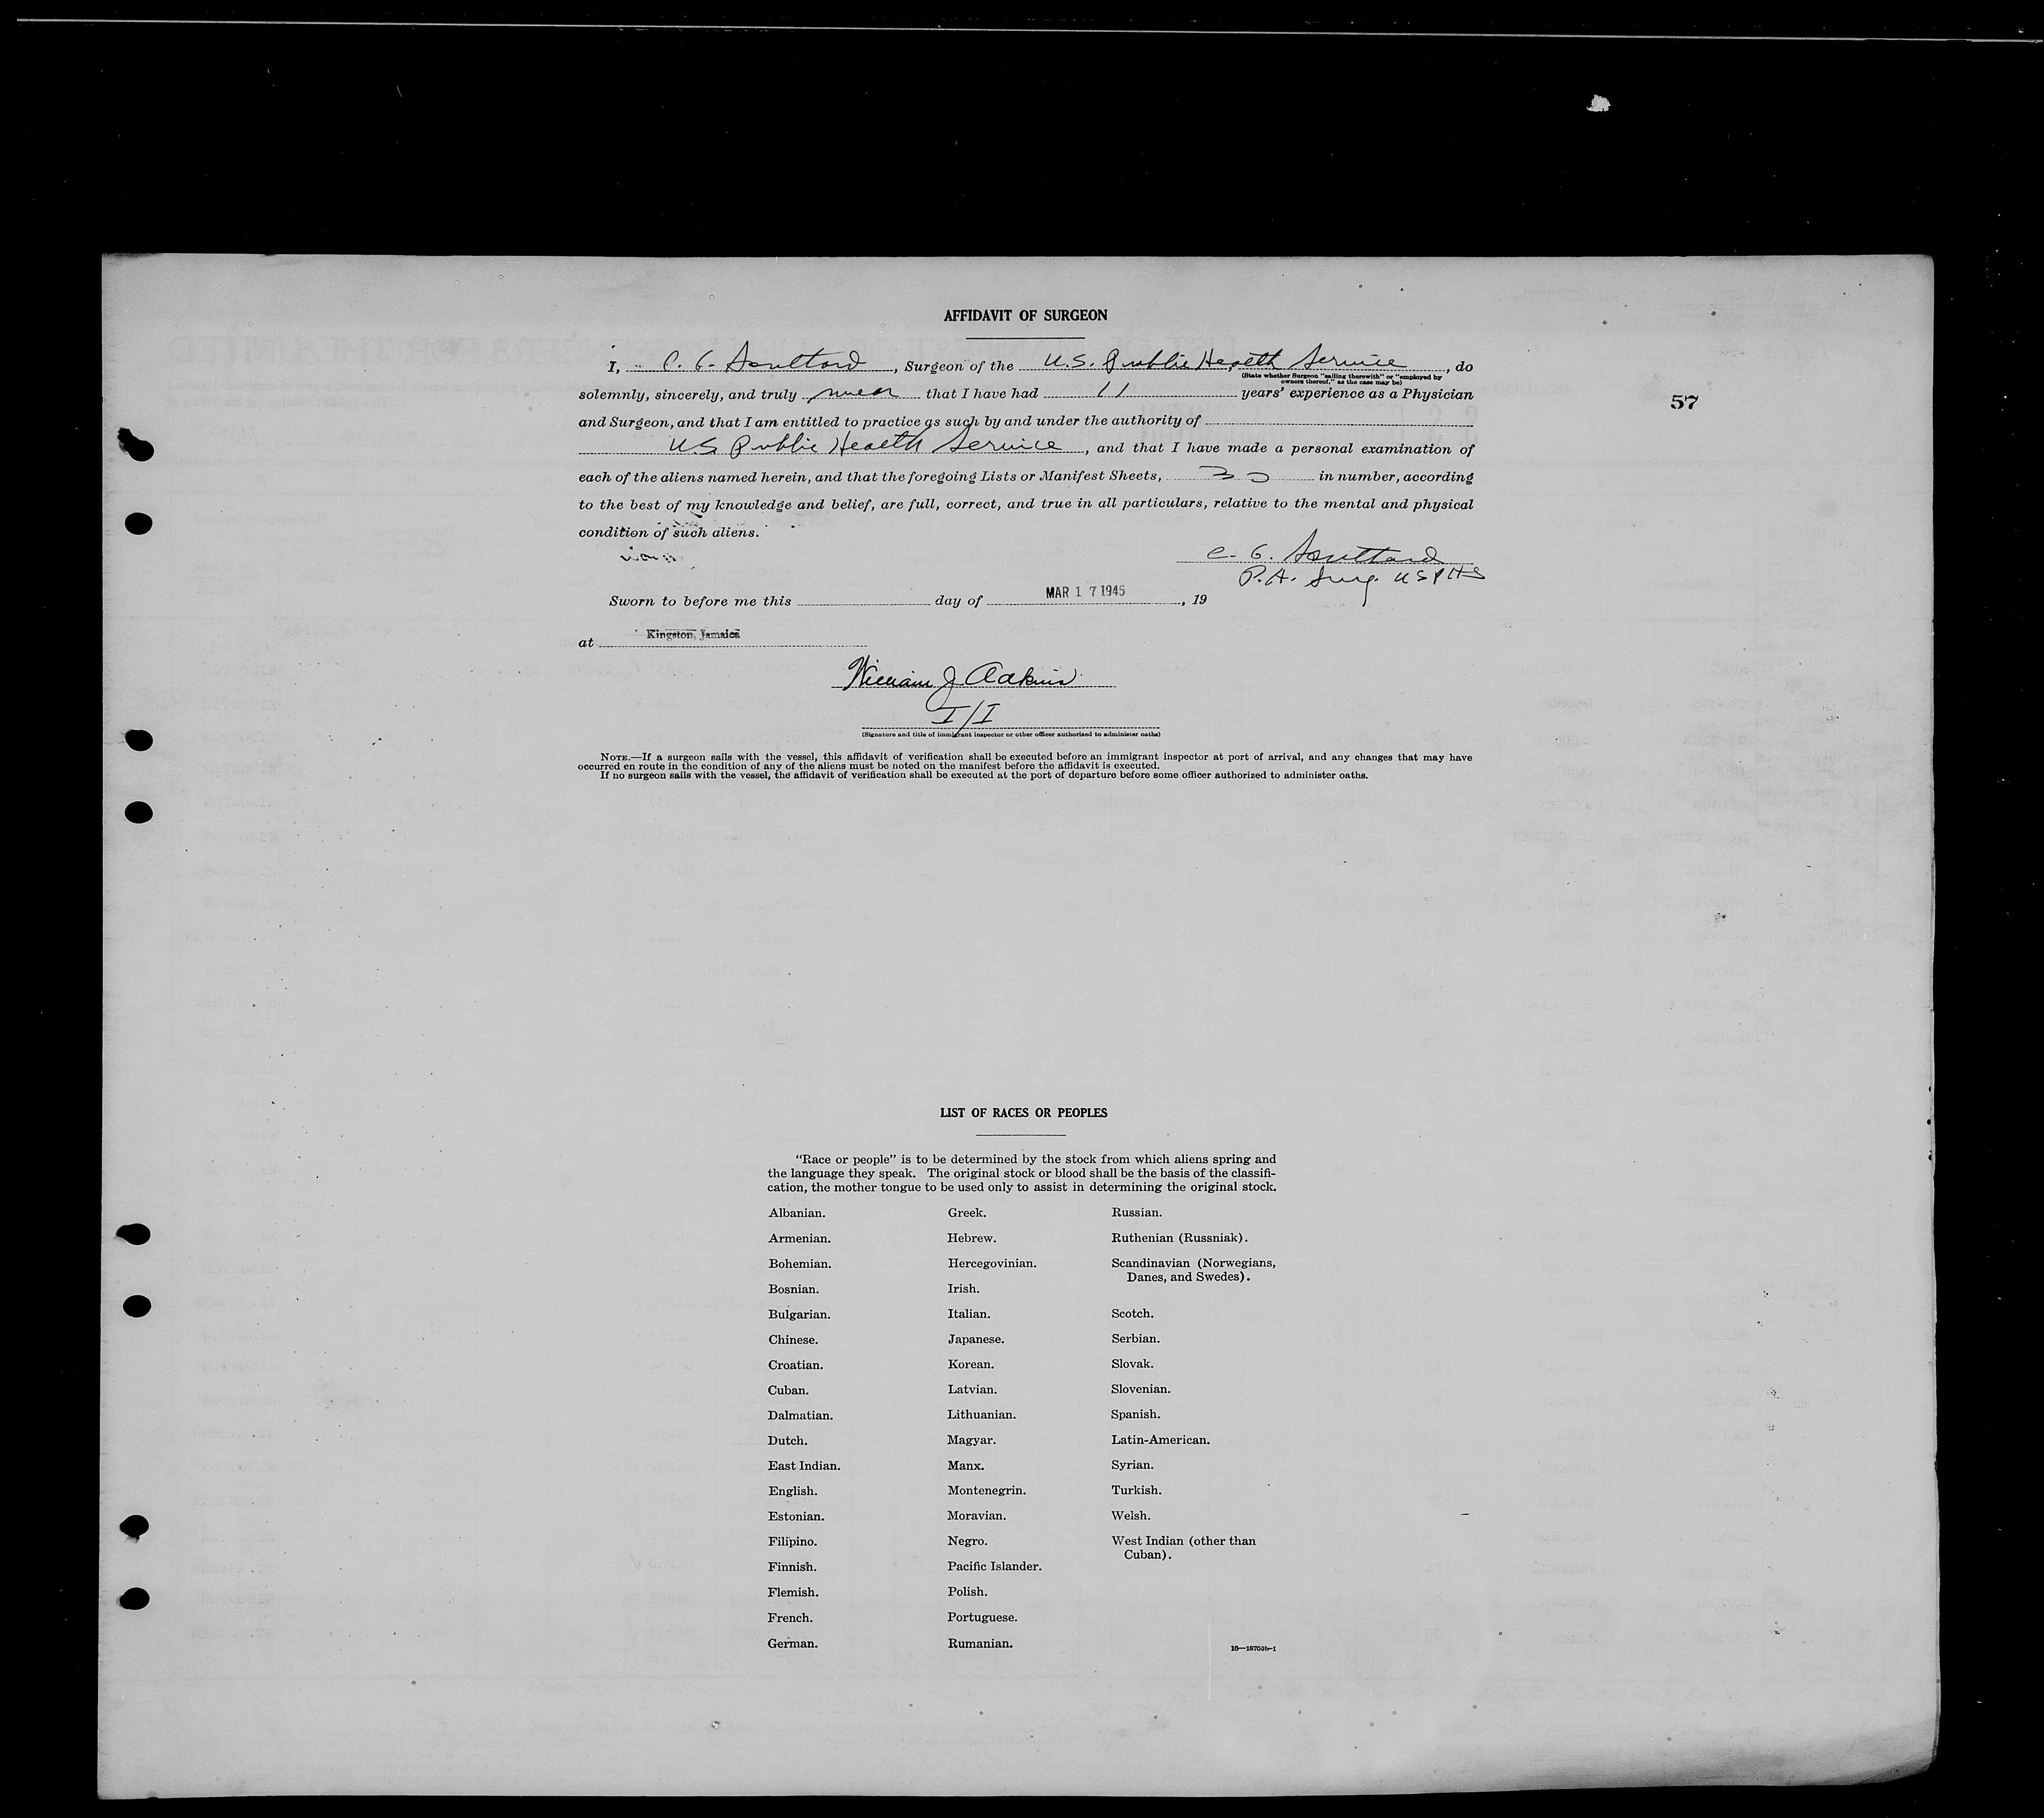 AFFIDAVIT OF SURGEON
I, C. G. Southard, Surgeon of the U.S. Public Health Service, do
(State whether Surgeon "sailing therewith" or "employed by
owners thereof," as the case may be)
solemnly, sincerely, and truly swear that I have had 11 years' experience as a Physician
57
and Surgeon, and that I am entitled to practice as such by and under the authority of
US Public Health Service, and that I have made a personal examination of
each of the aliens named herein, and that the foregoing Lists or Manifest Sheets, in number, according
to the best of my knowledge and belief, are full, correct, and true in all particulars, relative to the mental and physical
condition of such aliens.
C. G. Southard
P.A. Surg. USPHS
Sworn to before me this day of MAR 17 1945, 19
at Kingston, Jamaica
William J Adkins
I/I
(Signature and title of immigrant inspector or other officer authorized to administer oaths)
NOTE.—If a surgeon sails with the vessel, this affidavit of verification shall be executed before an immigrant inspector at port of arrival, and any changes that may have
occurred en route in the condition of any of the aliens must be noted on the manifest before the affidavit is executed.
If no surgeon sails with the vessel, the affidavit of verification shall be executed at the port of departure before some officer authorized to administer oaths.
LIST OF RACES OR PEOPLES
"Race or people" is to be determined by the stock from which aliens spring and
the language they speak. The original stock or blood shall be the basis of the classifi-
cation, the mother tongue to be used only to assist in determining the original stock.
Albanian.
Armenian.
Bohemian.
Bosnian.
Bulgarian.
Chinese.
Croatian.
Cuban.
Dalmatian.
Dutch.
East Indian.
English.
Estonian.
Filipino.
Finnish.
Flemish.
French.
German.
Greek.
Hebrew.
Hercegovinian.
Irish.
Italian.
Japanese.
Korean.
Latvian.
Lithuanian.
Magyar.
Manx.
Montenegrin.
Moravian.
Negro.
Pacific Islander.
Polish.
Portuguese.
Rumanian.
Russian.
Ruthenian (Russniak).
Scandinavian (Norwegians,
Danes, and Swedes).
Scotch.
Serbian.
Slovak.
Slovenian.
Spanish.
Latin-American.
Syrian.
Turkish.
Welsh.
West Indian (other than
Cuban).